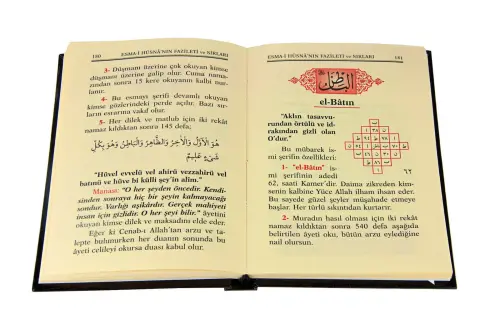 180 ESMA-İ HÜSNA'NIN FAZİLETİ ve SIRLARI
3- Düşmanı üzerine çok okuyan kimse
düşmanı üzerine galip olur. Cuma nama-
zından sonra 15 kere okuyanın kalbi nur-
lanır.
4- Bu esmayı şerifi devamlı okuyan
kimse gözlerindeki perde açılır. Bazı sır-
ların esrarına vakıf olur.
5- Her dilek ve matlub için iki rekat
namaz kıldıktan sonra 145 defa;
هُوَ الْاَوَّلُ وَالْاٰخِرُ وَالظَّاهِرُ وَالْبَاطِنُ وَهُوَ بِكُلِّ
شَيْءٍ عَلِيمٌ
"Hüvel evvelü vel ahirü vezzahirü vel
batınü ve hüve bi külli şey'in alim."
Manası: "O her şeyden öncedir. Kendi-
sinden sonraya hiç bir şeyin kalmayacağı
sondur. Varlığı aşikârdır. Gerçek mahiyeti
insan için gizlidir. O her şeyi bilir." âyetini
okuyan kimse dilek ve maksadına ulaşır.
Eğer ki Cenab-ı Allah'tan arzu ve ta-
lepte bulunurken her duanın sonunda bu
âyeti celileyi okursa duası kabul olur.
ESMA-İ HÜSNA'NIN FAZİLETİ ve SIRLARI 181
el-Bâtın
"Aklın tasavvu-
rundan örtülü ve id-
rakından gizli olan
O'dur."
Bu mübarek is-
mi şerifin özellikleri:
1- "el-Bâtın" is-
mi şerifinin adedi
62, saati Kamer'dir. Daima zikreden kim-
senin kalbine Yüce Allah ilham ihsan eder.
Bu sayede güzel şeyler müşahade etmeye
başlar. Her türlü sıkıntıdan kurtarır.
2- Muradın hasıl olması için iki rekat
namaz kıldıktan sonra 540 defa aşağıda
belirtilen âyeti oku, bütün arzu eylediğine
nail olursun.